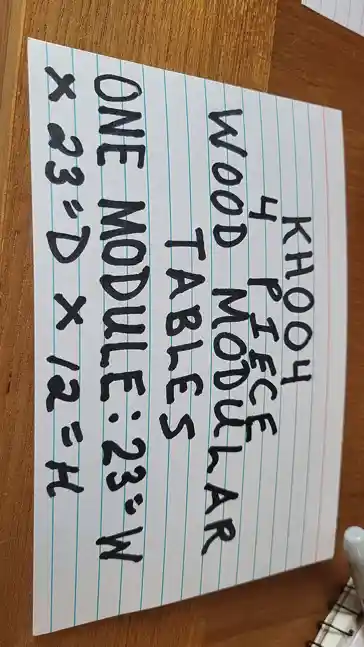 KH004
4 PIECE
WOOD MODULAR
TABLES
ONE MODULE: 23" W
X 23" D X 12" H